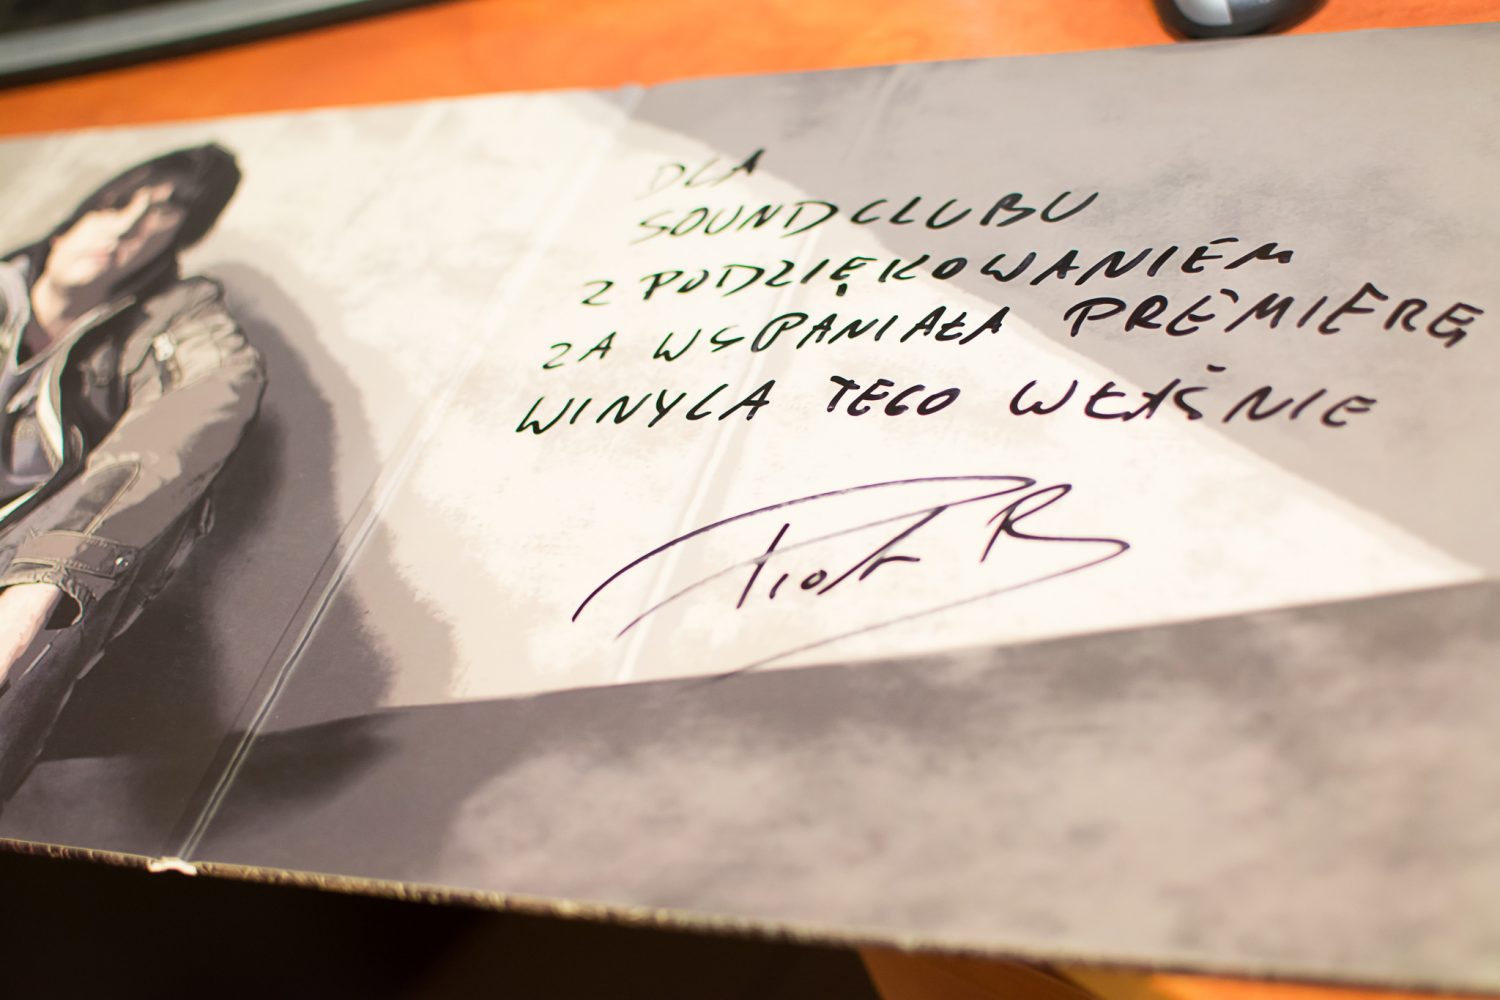 DLA
SOUNDCLUBU
Z PODZIĘKOWANIEM
ZA WSPANIAŁA PREMIERĘ
WINYLA TEGO WŁAŚNIE
Piotr R